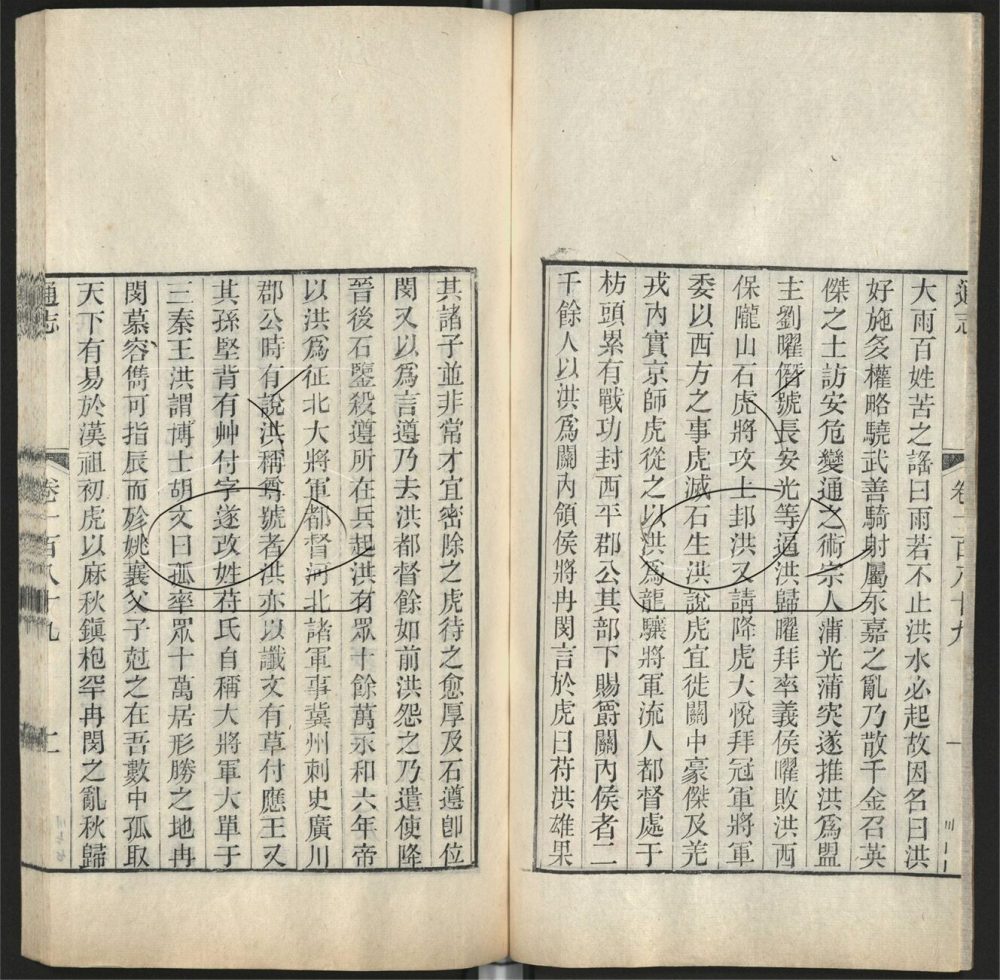 通志
卷一百八十九
一
大雨百姓苦之謠曰雨若不止洪水必起故因名曰洪
好施多權略驍武善騎射屬永嘉之亂乃散千金召英
傑之士訪安危變通之術宗人蒲光蒲突遂推洪爲盟
主劉曜僭號長安光等逼洪歸曜拜率義侯曜敗洪西
保隴山石虎將攻上邽洪又請降虎大悅拜冠軍將軍
委以西方之事虎滅石生洪說虎宜徙關中豪傑及羌
戎內實京師虎從之以洪爲龍驤將軍流人都督處于
枋頭累有戰功封西平郡公其部下賜爵關內侯者二
千餘人以洪爲關內領侯將冉閔言於虎曰苻洪雄果
其諸子並非常才宜密除之虎待之愈厚及石遵卽位
閔又以爲言遵乃去洪都督餘如前洪怨之乃遣使降
晉後石鑒殺遵所在兵起洪有眾十餘萬永和六年帝
以洪爲征北大將軍都督河北諸軍事冀州刺史廣川
郡公時有說洪稱尊號者洪亦以讖文有草付應王又
其孫堅背有艸付字遂改姓苻氏自稱大將軍大單于
三秦王洪謂博士胡文曰孤率眾十萬居形勝之地冉
閔慕容儁可指辰而殄姚襄父子尅之在吾數中孤取
天下有易於漢祖初虎以麻秋鎮枹罕冉閔之亂秋歸
通志
卷一百八十九
二